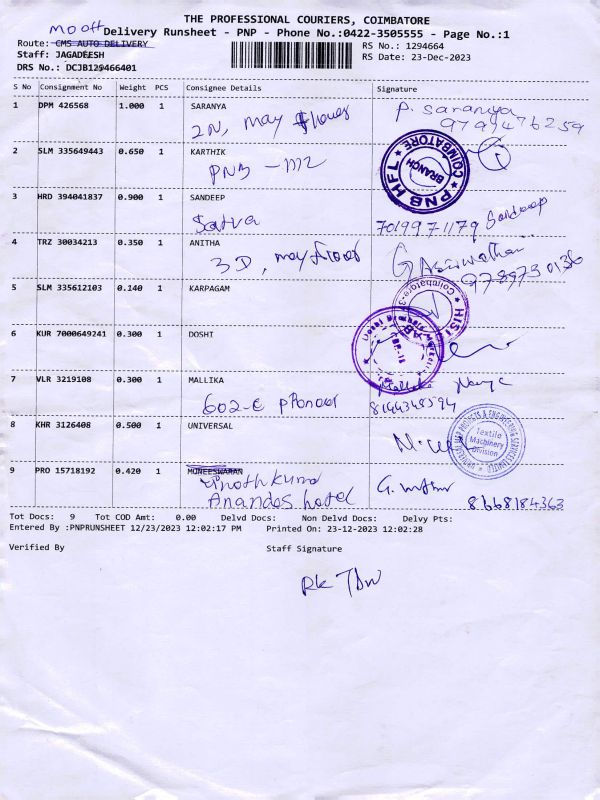 THE PROFESSIONAL COURIERS, COIMBATORE
Mo off Delivery Runsheet - PNP - Phone No.:0422-3505555 - Page No.:1
Route: CMS AUTO DELIVERY RS No.: 1294664
Staff: JAGADEESH RS Date: 23-Dec-2023
DRS No.: DCJB129466401
S No Consignment No Weight PCS Consignee Details Signature
1 DPM 426568 1.000 1 SARANYA P. Saranya
2N, may flower 9791476259
2 SLM 335649443 0.650 1 KARTHIK
PNB
PNB HFL BRANCH COIMBATORE
3 HRD 394041837 0.900 1 SANDEEP
Satva 7019971179 Sandeep
4 TRZ 30034213 0.350 1 ANITHA
3D, may flower 9789730136
5 SLM 335612103 0.140 1 KARPAGAM
6 KUR 7000649241 0.300 1 DOSHI
7 VLR 3219108 0.300 1 MALLIKA
602-C 8144348594
8 KHR 3126408 0.500 1 UNIVERSAL
Textile
Machinery
Division
9 PRO 15718192 0.420 1 MUNEESWARAN
Anandas hotel 8668184363
Tot Docs: 9 Tot COD Amt: 0.00 Delvd Docs: Non Delvd Docs: Delvy Pts:
Entered By :PNPRUNSHEET 12/23/2023 12:02:17 PM Printed On: 23-12-2023 12:02:28
Verified By Staff Signature